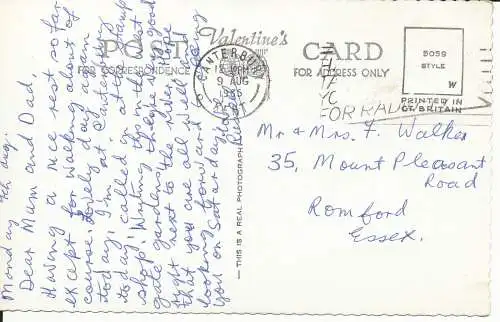 POST Valentine's CARD
FOR CORRESPONDENCE
FOR ADDRESS ONLY
CANTERBURY
9 AUG
5059
STYLE
W
PRINTED IN
GT. BRITAIN
THIS IS A REAL PHOTOGRAPH
Monday 9th Aug.
Dear Mum and Dad,
Having a nice rest so far
except for walking about of
course. Lovely day again
today, I'm at Canterbury
today, called in at the stamp
shop. Writing this in the West
gate gardens, there are good
right next to the river. Hope
that you are all well. Am
looking forward to seeing
you on Saturday.
Mr & Mrs. F. Walker
35, Mount Pleasant
Road
Romford
Essex.